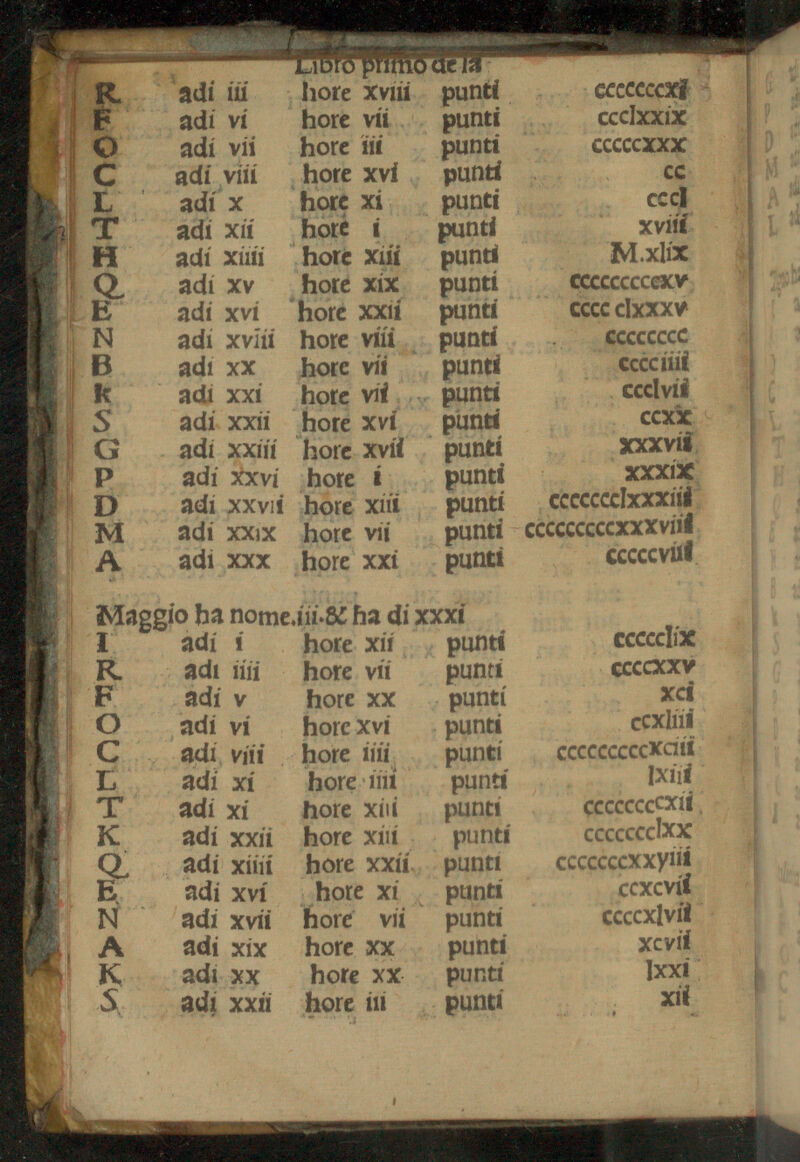 Libro primo de la
R adi iii hore xviii punti cccccccxii
F adi vi hore vii punti ccclxxix
O adi vii hore iii punti cccccxxx
C adi viii hore xvi punti cc
L adi x hore xi punti cccl
T adi xii hore i punti xviii
H adi xiiii hore xiii punti M.xlix
Q adi xv hore xix punti cccccccccxv
E adi xvi hore xxii punti cccc clxxxv
N adi xviii hore viii punti cccccccc
B adi xx hore vii punti cccciiii
K adi xxi hore vii punti ccclvii
S adi xxii hore xvi punti ccxx
G adi xxiii hore xvii punti xxxvii
P adi xxvi hore i punti xxxix
D adi xxvii hore xiii punti ccccccclxxxiiii
M adi xxix hore vii punti cccccccccxxxviii
A adi xxx hore xxi punti cccccviii

Maggio ha nome.iii.& ha di xxxi
I adi i hore xii punti ccccclix
R adi iiii hore vii punti ccccxxv
F adi v hore xx punti xci
O adi vi hore xvi punti ccxliii
C adi, viii hore iiii punti cccccccccxciii
L adi xi hore iiii punti lxiii
T adi xi hore xiii punti ccccccccxii
K adi xxii hore xiii punti ccccccclxx
Q adi xiiii hore xxii punti cccccccxxyiii
E adi xvi hore xi punti ccxcvii
N adi xvii hore vii punti ccccxlvii
A adi xix hore xx punti xcvii
K adi xx hore xx punti lxxi
S adi xxii hore iii punti xii